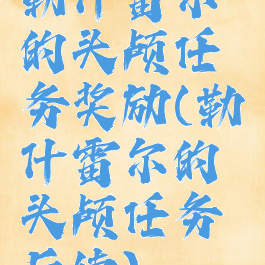 勒什雷尔
的头颅任
务奖励(勒
什雷尔的
头颅任务
后续)